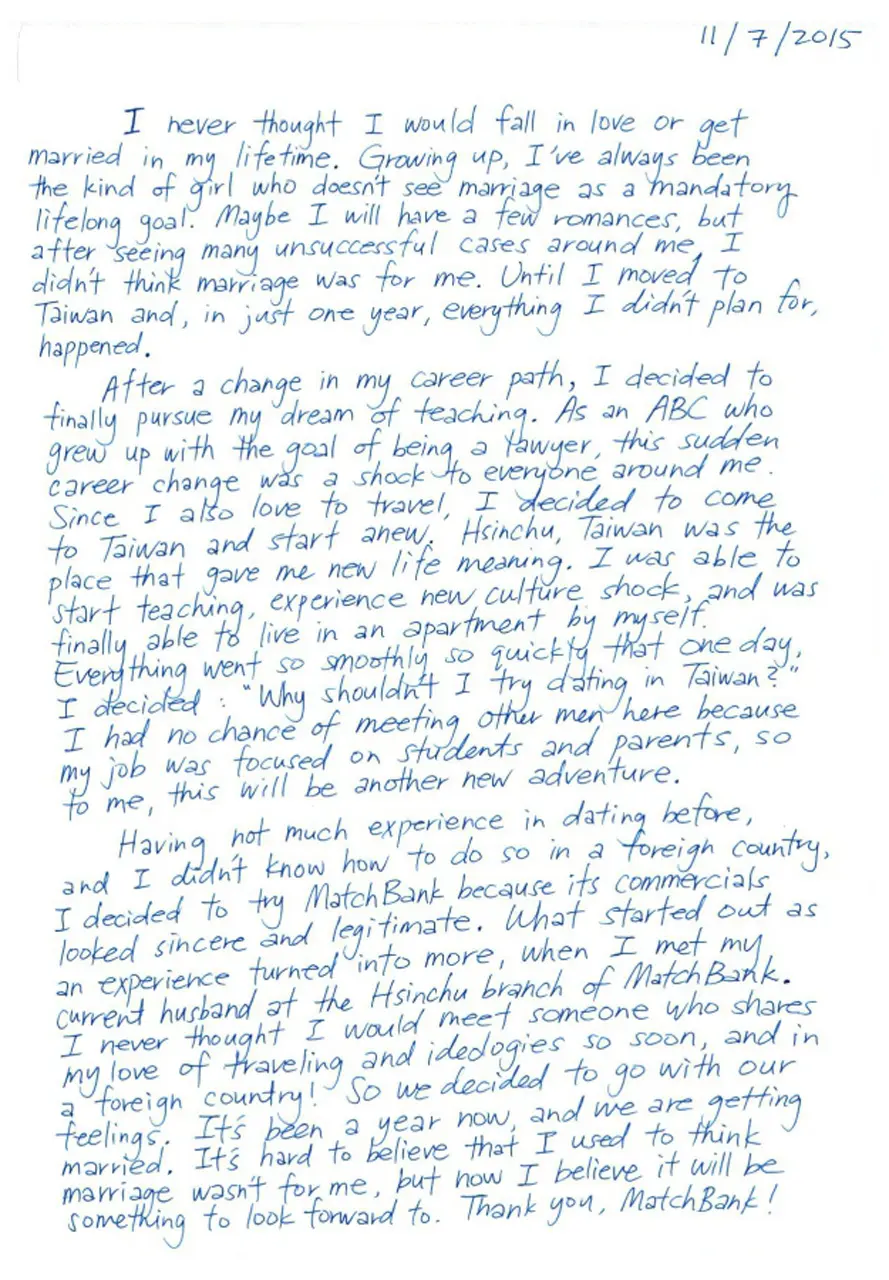 11/7/2015
I never thought I would fall in love or get
married in my lifetime. Growing up, I've always been
the kind of girl who doesn't see marriage as a mandatory
lifelong goal. Maybe I will have a few romances, but
after seeing many unsuccessful cases around me, I
didn't think marriage was for me. Until I moved to
Taiwan and, in just one year, everything I didn't plan for,
happened.
After a change in my career path, I decided to
finally pursue my dream of teaching. As an ABC who
grew up with the goal of being a lawyer, this sudden
career change was a shock to everyone around me.
Since I also love to travel, I decided to come
to Taiwan and start anew. Hsinchu, Taiwan was the
place that gave me new life meaning. I was able to
start teaching, experience new culture shock, and was
finally able to live in an apartment by myself.
Everything went so smoothly so quickly that one day,
I decided: "Why shouldn't I try dating in Taiwan?"
I had no chance of meeting other men here because
my job was focused on students and parents, so
to me, this will be another new adventure.
Having not much experience in dating before,
and I didn't know how to do so in a foreign country,
I decided to try MatchBank because its commercials
looked sincere and legitimate. What started out as
an experience turned into more, when I met my
current husband at the Hsinchu branch of MatchBank.
I never thought I would meet someone who shares
my love of traveling and ideologies so soon, and in
a foreign country! So we decided to go with our
feelings. It's been a year now, and we are getting
married. It's hard to believe that I used to think
marriage wasn't for me, but now I believe it will be
something to look forward to. Thank you, MatchBank!